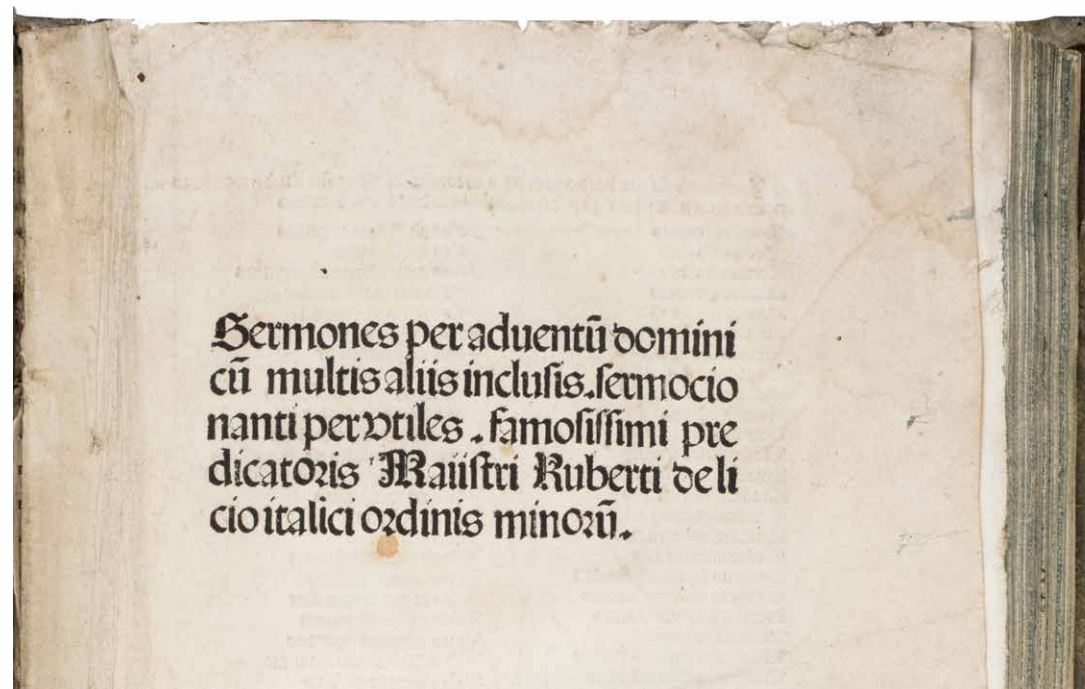 Sermones per aduentū domini
cū multis aliis inclusis. sermocio
nanti per vtiles. famosissimi pre
dicatoris Maiistri Ruberti de li
cio italici ordinis minorū.